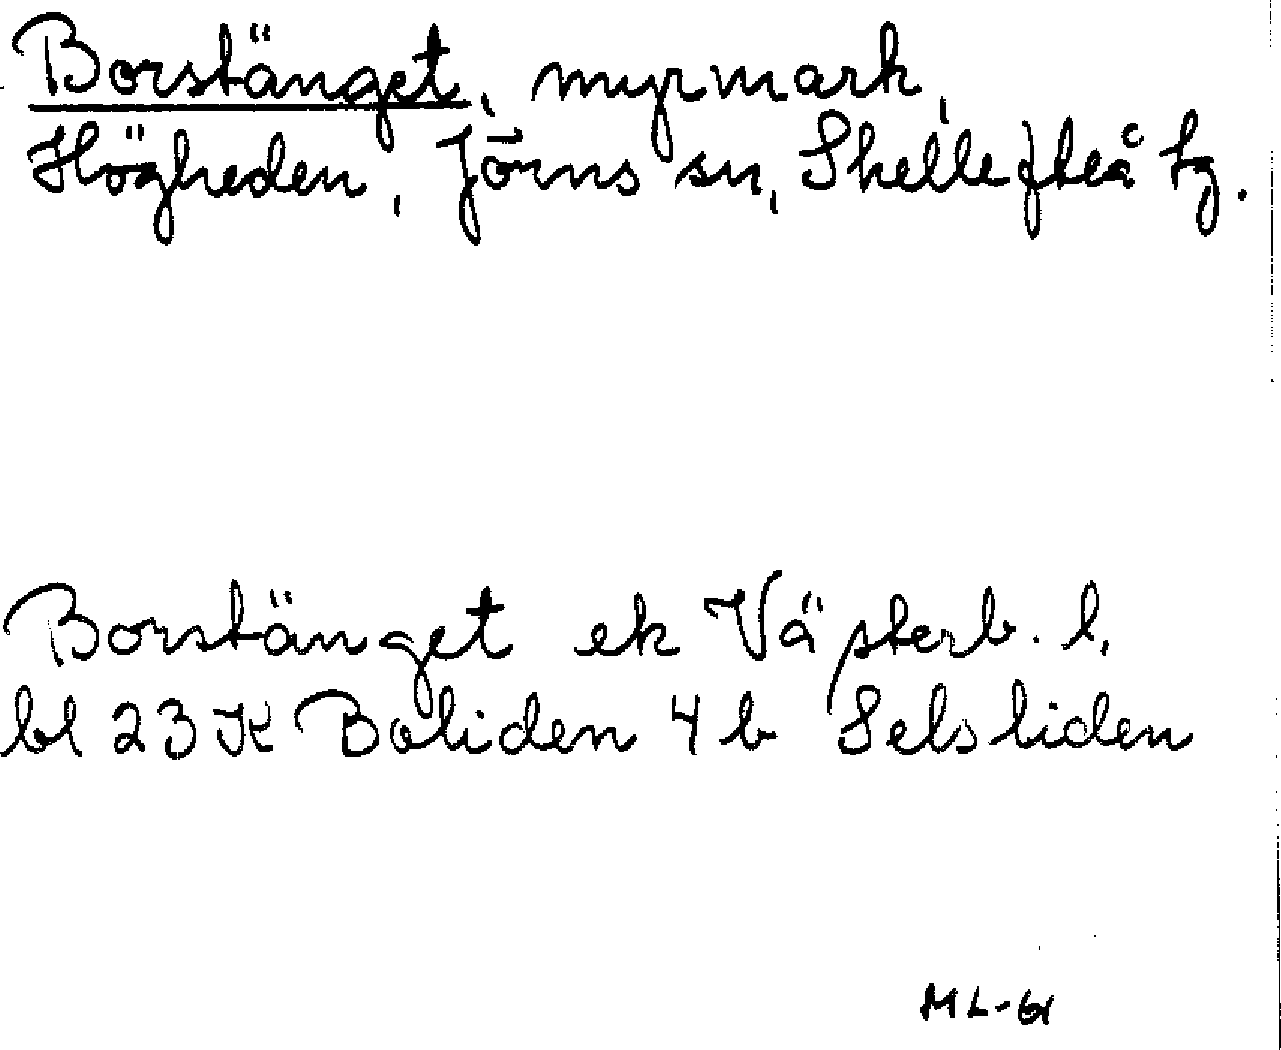 Borstänget, myrmark,
Högheden, Jörns sn, Skellefteå tg.
Borstänget ek Västerb. l.
bl 23 K Boliden 4 b Selsliden
ML-61